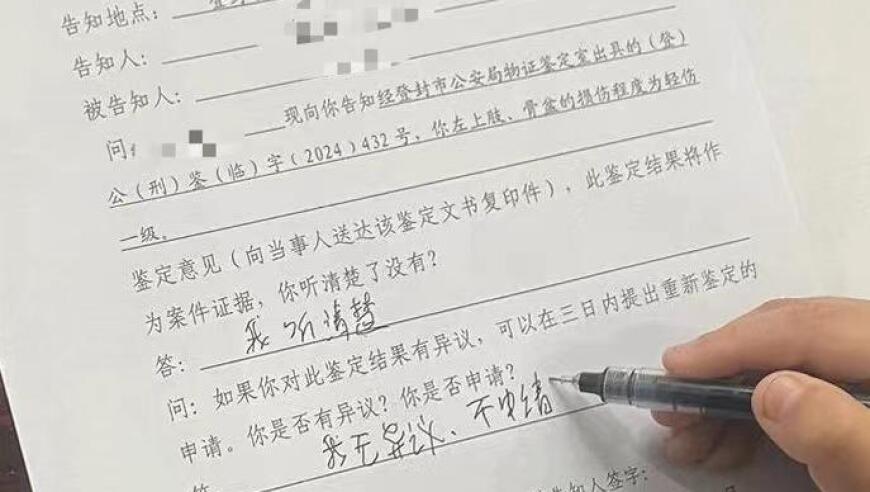 告知地点：
告知人：
被告知人：
问： 现向你告知经登封市公安局物证鉴定室出具的（登）
公（刑）鉴（临）字（2024）432号，你左上肢、骨盆的损伤程度为轻伤
一级。
鉴定意见（向当事人送达该鉴定文书复印件），此鉴定结果将作
为案件证据，你听清楚了没有？
答： 我听清楚
问：如果你对此鉴定结果有异议，可以在三日内提出重新鉴定的
申请。你是否有异议？你是否申请？
答： 我无异议、不申请
告知人签字：